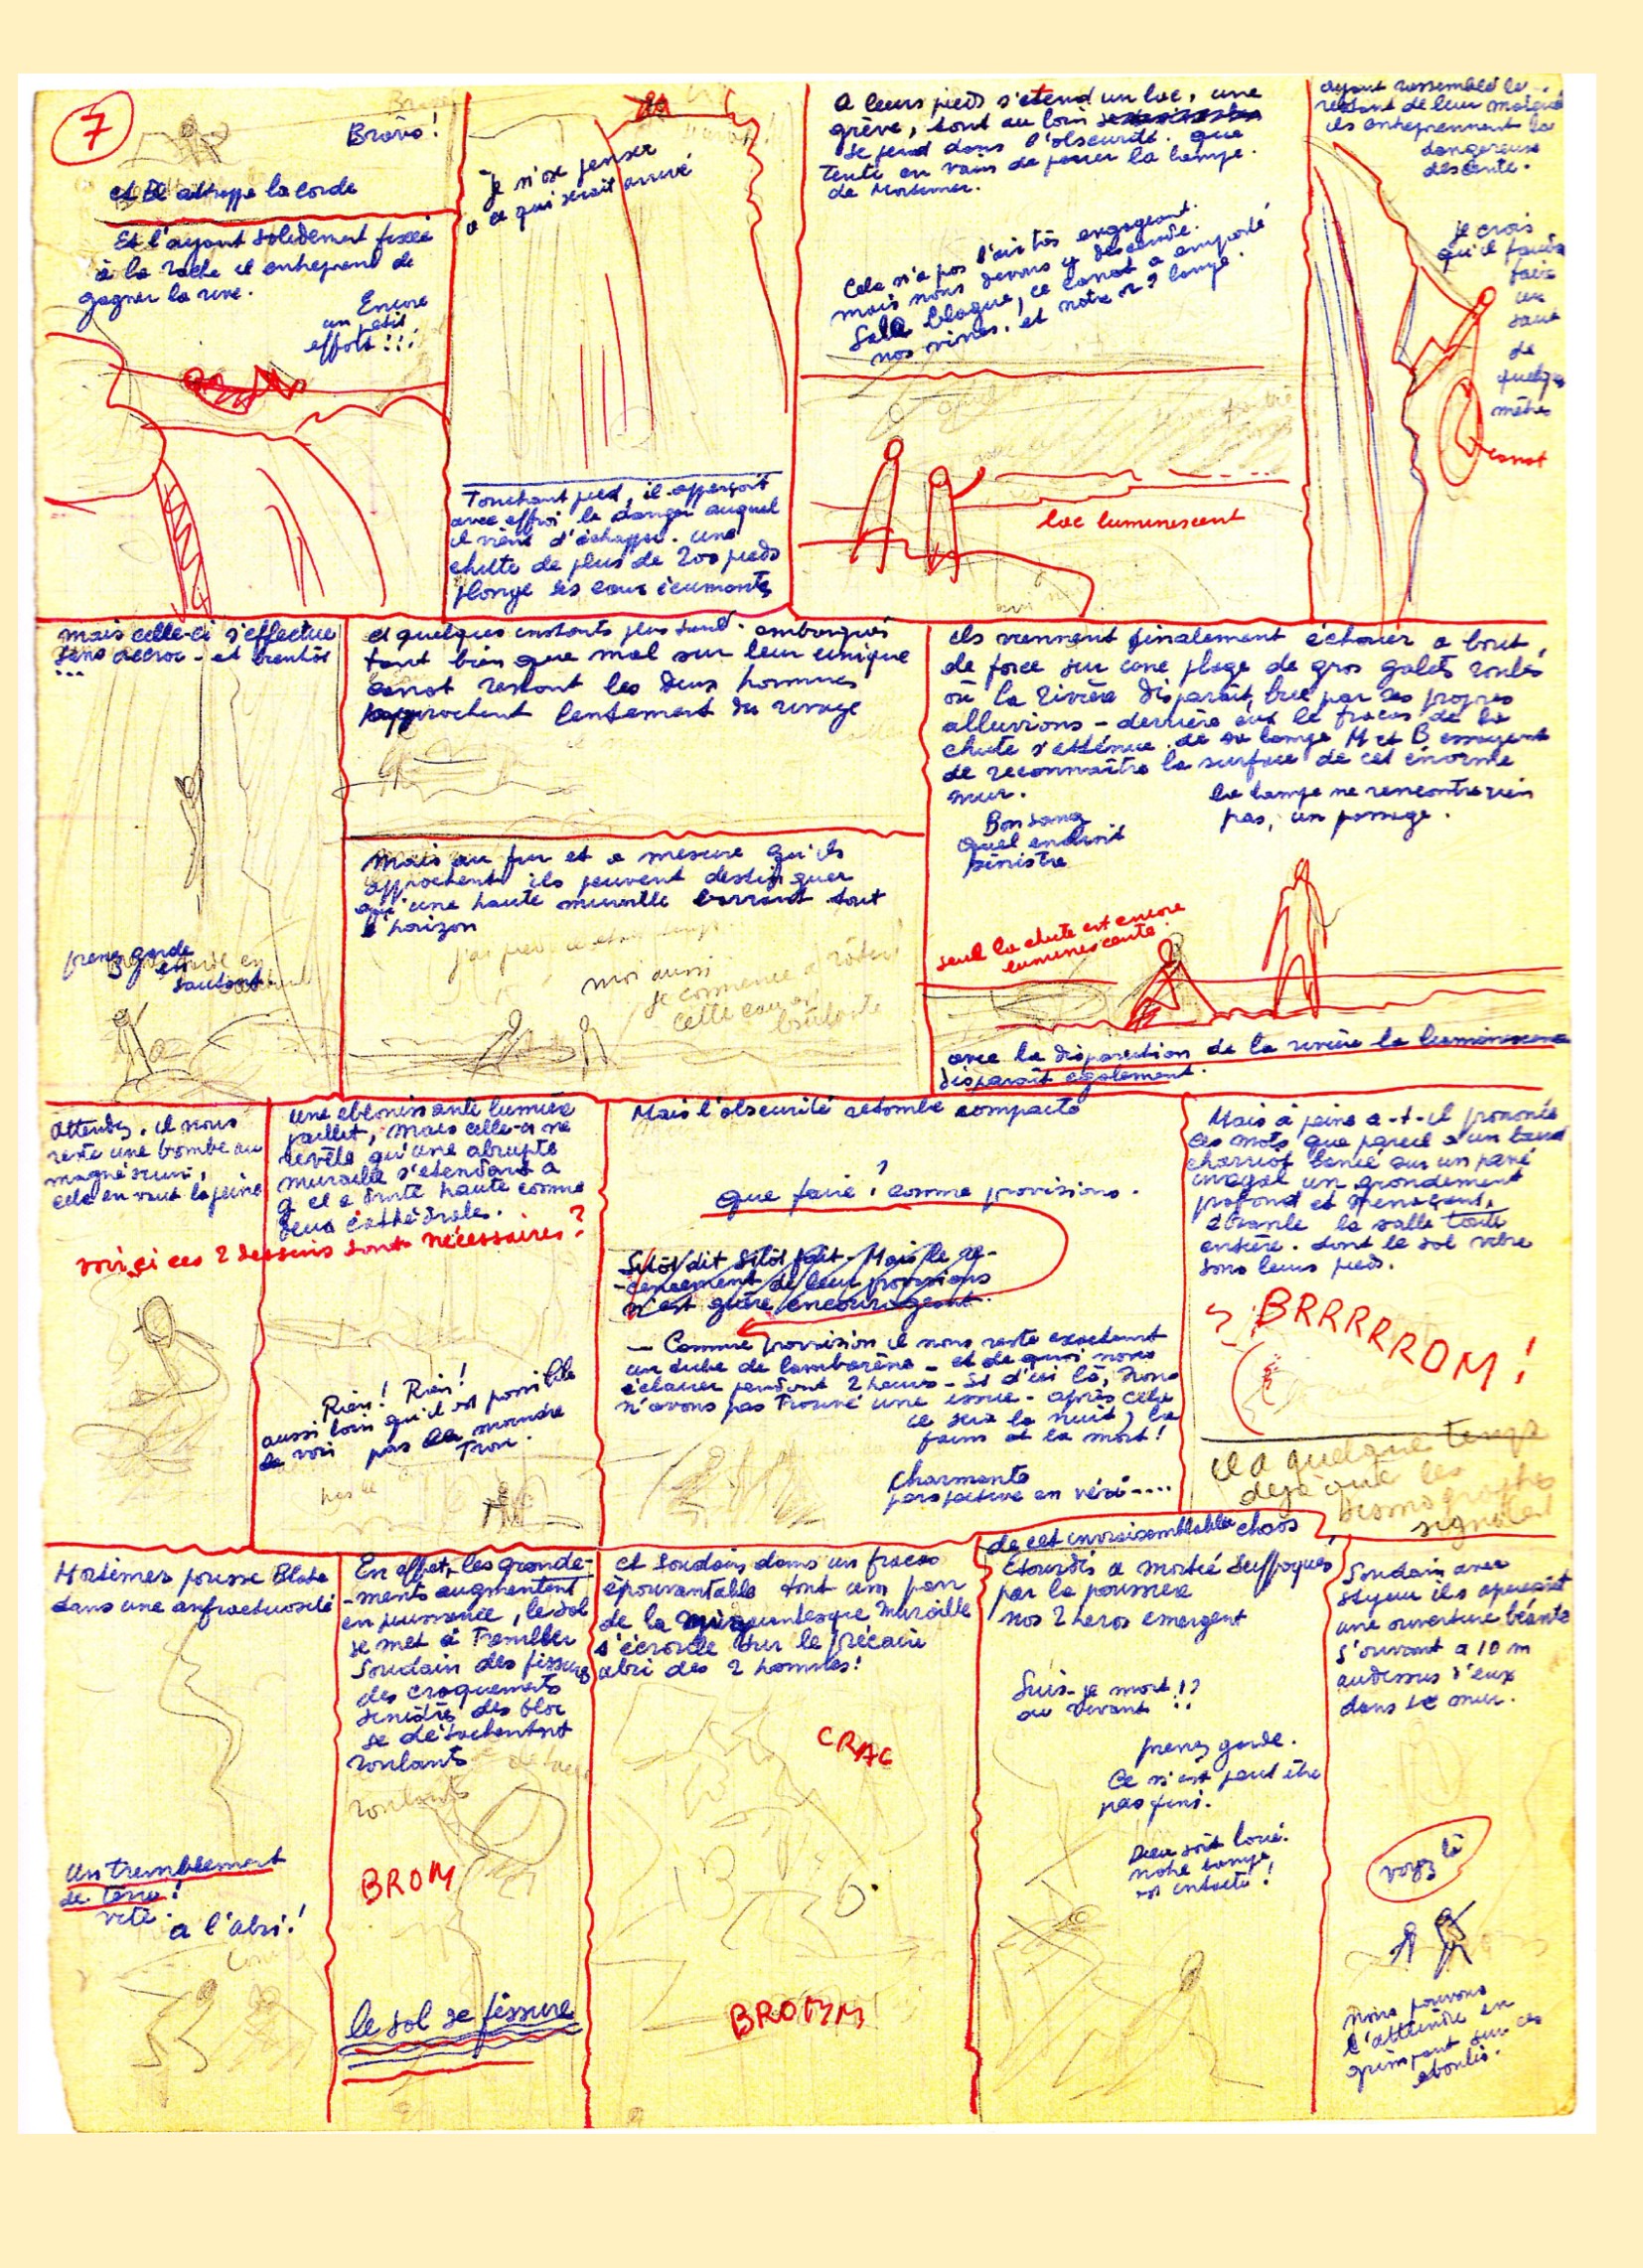 7
Bravo!
et Bl attrappe la corde
Et l'ayant solidement fixée
à la roche il entreprend de
gagner la rive.
Encore
un petit
effort!!!
Je n'ose penser
a ce qui serait arrivé
Touchant pied, il apperçoit
avec effroi le danger auquel
il vient d'échapper. une
chute de plus de 200 pieds
plonge les eaux écumantes
A leurs pieds s'etend un lac, une
grève, tout au loin
se perd dans l'obscurité. que
tente en vain de percer la lampe.
de Mortimer.
Cela n'a pas l'air très engageant.
mais nous devons y descendre.
Sale blague, ce canot a emporté
nos vivres. et notre 2e lampe.
lac luminescent
ayant rassemblé le
restant de leur matériel
ils entreprennent la
dangereuse
descente.
je crois
qu'il faudra
faire
un
saut
de
quelques
mètres
canot
mais celle-ci s'effectue
sans accroc - et bientôt
...
prenez garde
en
sautant
et quelques instants plus tard. embarqués
tant bien que mal sur leur unique
canot restant les deux hommes
rapprochent lentement du rivage
Mais au fur et a mesure qu'ils
approchent ils peuvent distinguer
qu'une haute muraille barrant tout
l'horizon
moi aussi
je commence a rôtir
cette eau est
brûlante
ils viennent finalement échouer a bout,
de force sur une plage de gros galets roulés
où la rivière disparait, bue par ses propres
alluvions - derrière eux le fracas de la
chute s'atténue. de sa lampe M et B essayent
de reconnaître la surface de cet énorme
mur.
la lampe ne rencontre rien
pas, un passage.
Bon sang
Quel endroit
sinistre
seul la chute est encore
luminescente.
avec la disparition de la rivière la luminescence
disparait egalement.
attendez. il nous
reste une bombe au
magnésium,
cela en vaut la peine
une eblouissante lumière
jaillit, mais celle-ci ne
revèle qu'une abrupte
muraille s'etendant a
g et a droite haute comme
deux cathédrales.
voir si ces 2 dessins sont nécessaires?
Rien! Rien!
aussi loin qu'il est possible
de voir pas le moindre
trou.
Mais l'obscurité retombe compacte
que faire? comme provisions.
Sitôt dit sitôt fait - Mais le re-
-censement de leur provisions
n'est guère encourageant.
- Comme provision il nous reste exactement
un tube de lambarène - et de quoi nous
éclairer pendant 2 heures - Si d'ici là, nous
n'avons pas trouvé une issue - après cela
ce sera la nuit, la
faim et la mort!
Charmante
perspective en vérité....
Mais à peine a-t-il prononcé
ces mots que pareil a un lourd
charriot lancé sur un pavé
inégal un grondement
profond et menaçant,
ébranle la salle toute
entière. dont le sol vibre
sous leurs pieds.
BRRRRROM!
il a quelque temps
déjà que les
sismographes
signalent
Mortimer pousse Blake
dans une anfractuosité
un tremblement
de terre!
vite.
a l'abri!
En effet, les gronde-
-ments augmentent
en puissance, le sol
se met à trembler
Soudain des fissures
des craquements
sinistres des bloc
se détachent
roulants
roulants
BROM
le sol se fissure
et soudain dans un fracas
épouvantable tout un pan
de la gigantesque muraille
s'écroule sur le précaire
abri des 2 hommes!
CRAC
BROMM
de cet invraisemblable chaos
Etourdis a moitié suffoqués
par la poussière
nos 2 héros emergent
Suis-je mort!?
ou vivant!!
prenez garde.
Ce n'est peut être
pas fini.
Dieu soit loué.
notre lampe
est intacte!
Soudain avec
stupeur ils aperçoivent
une ouverture béante
s'ouvrant a 10 m
audessus d'eux
dans le mur.
voyez là
nous pouvons
l'atteindre en
grimpant sur ces
eboulis.